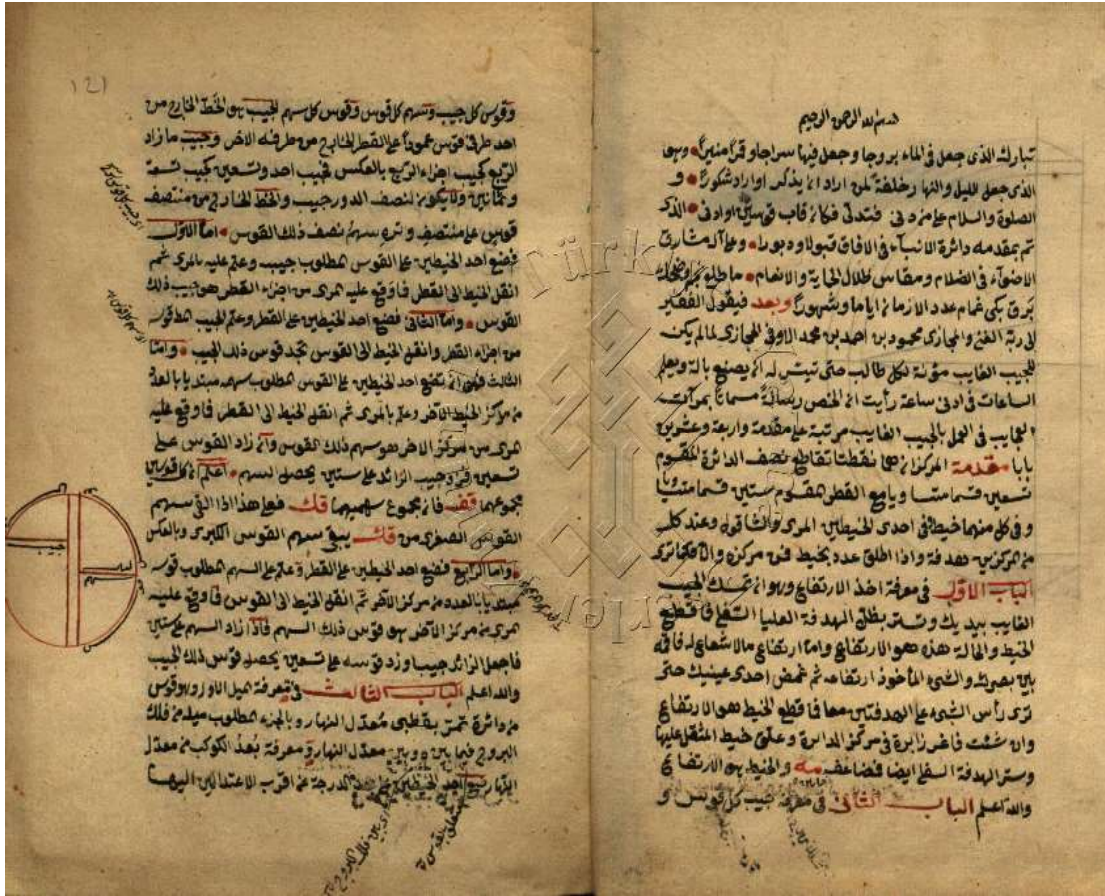 بسم الله الرحمن الرحيم
تبارك الذى جعل فى السماء بروجا وجعل فيها سراجا وقمرا منيرا وهو
الذى جعل الليل والنهار خلفة لمن اراد ان يذكر او اراد شكورا و
الصلوة والسلام على من دنى فتدلى فكان قاب قوسين او ادنى الذى
تم بمقدمه دائرة الانبياء فى الافاق قبولا ودبورا وعلى آله مشارق
الاضواء فى الظلام ومقاس ظلال الحماية والانعام ما طلع نجم وضحك
برق بكى غمام عدد الازمان اياما وشهورا وبعد فيقول الفقير
الى ربه الغنى والمجازى محمود بن احمد بن محمد المجازى لما لم يكن
للجيب الغايب مؤنة لكل طالب حتى تيسر له ان يصنع بالة ويعلم
الساعات فى ادنى ساعة رأيت ان الخص رسالة مسماة بمرآت
العجايب فى العمل بالجيب الغايب مرتبة على مقدمة واربعة وعشرين
بابا مقدمة المركزان هما نقطتا تقاطع نصف الدائرة المقسوم
تسعين قسما متساويا مع القطر المقسوم ستين قسما متساويا
وفى كل منهما خيط فى احدى الخيطين المرى والشاقول وعند كل
من المركزين هدفة واذا اطلق عدد بخيط فمن مركزه والا فكما ترى
الباب الاول فى معرفة اخذ الارتفاع وهو ان تمسك الجيب
الغايب بيديك وتستر بظل الهدفة العليا السفلى فما قطع
الخيط والحالة هذه هو الارتفاع واما ارتفاع ما لا شعاع له
بين بصرك والشىء المأخوذ ارتفاعه ثم غمض احدى عينيك حتى
ترى رأس الشىء على الهدفتين معا فما قطع الخيط هو الارتفاع
وان شئت فاغرز ابرة فى مركز الدائرة وعلق خيط المثقل عليها
وستر الهدفة السفلى ايضا مه والخيط هو الارتفاع
والله اعلم الباب الثانى فى معرفة جيب كل قوس و
١٢١
وقوس كل جيب وسهم كل قوس وقوس كل سهم الجيب هو الخط الخارج من
احد طرفى قوس عمودا على القطر الخارج من طرفه الاخر وجيب ما زاد
الربع كجيب اجزاء الربع بالعكس فجيب احد وتسعين كجيب تسعة
وثمانين ولا يكون لنصف الدور جيب والخط الخارج من منتصف
قوس على منتصف وتره سهم نصف ذلك القوس اما الاول
فضع احد الخيطين على القوس المطلوب جيبه وعلم عليه بالمرى ثم
انقل الخيط الى القطر فما وقع عليه المرى من اجزاء القطر هو جيب ذلك
القوس واما الثانى فضع احد الخيطين على القطر وعلم الجيب
من اجزاء القطر وانقل الخيط الى القوس تجد قوس ذلك الجيب واما
الثالث فهو ان تضع احد الخيطين على القوس المطلوب سهمه مبتديا بالعدد
من مركز الخيط الآخر وعلم بالمرى ثم انقل الخيط الى القطر فما وقع عليه
المرى من مركز الاخر هو سهم ذلك القوس وان زاد القوس على
تسعين فزد جيب الزائد على ستين يحصل السهم اعلم ان كل قوسين
مجموعهما قف فان مجموع سهميهما قك فعلى هذا اذا القى سهم
القوس الصغرى من قك يبقى سهم القوس الكبرى وبالعكس
واما الرابع فضع احد الخيطين على القطر وعلم على السهم المطلوب قوسه
مبتديا بالعدد من مركز الآخر ثم انقل الخيط الى القوس فما وقع عليه
المرى من مركز الآخر هو قوس ذلك السهم فاذا زاد السهم على ستين
فاجعل الزائد جيبا وزد قوسه على تسعين يحصل قوس ذلك الجيب
والله اعلم الباب الثالث فى معرفة الميل الاول وهو قوس
من دائرة تمر بقطبى معدل النهار وبالجزء المطلوب ميله من فلك
البروج فيما بينه وبين معدل النهار ومعرفة بعد الكوكب من معدل
النهار ضع احد الخيطين على بعد الدرجة من اقرب الاعتدالين اليها
جيب
سهم